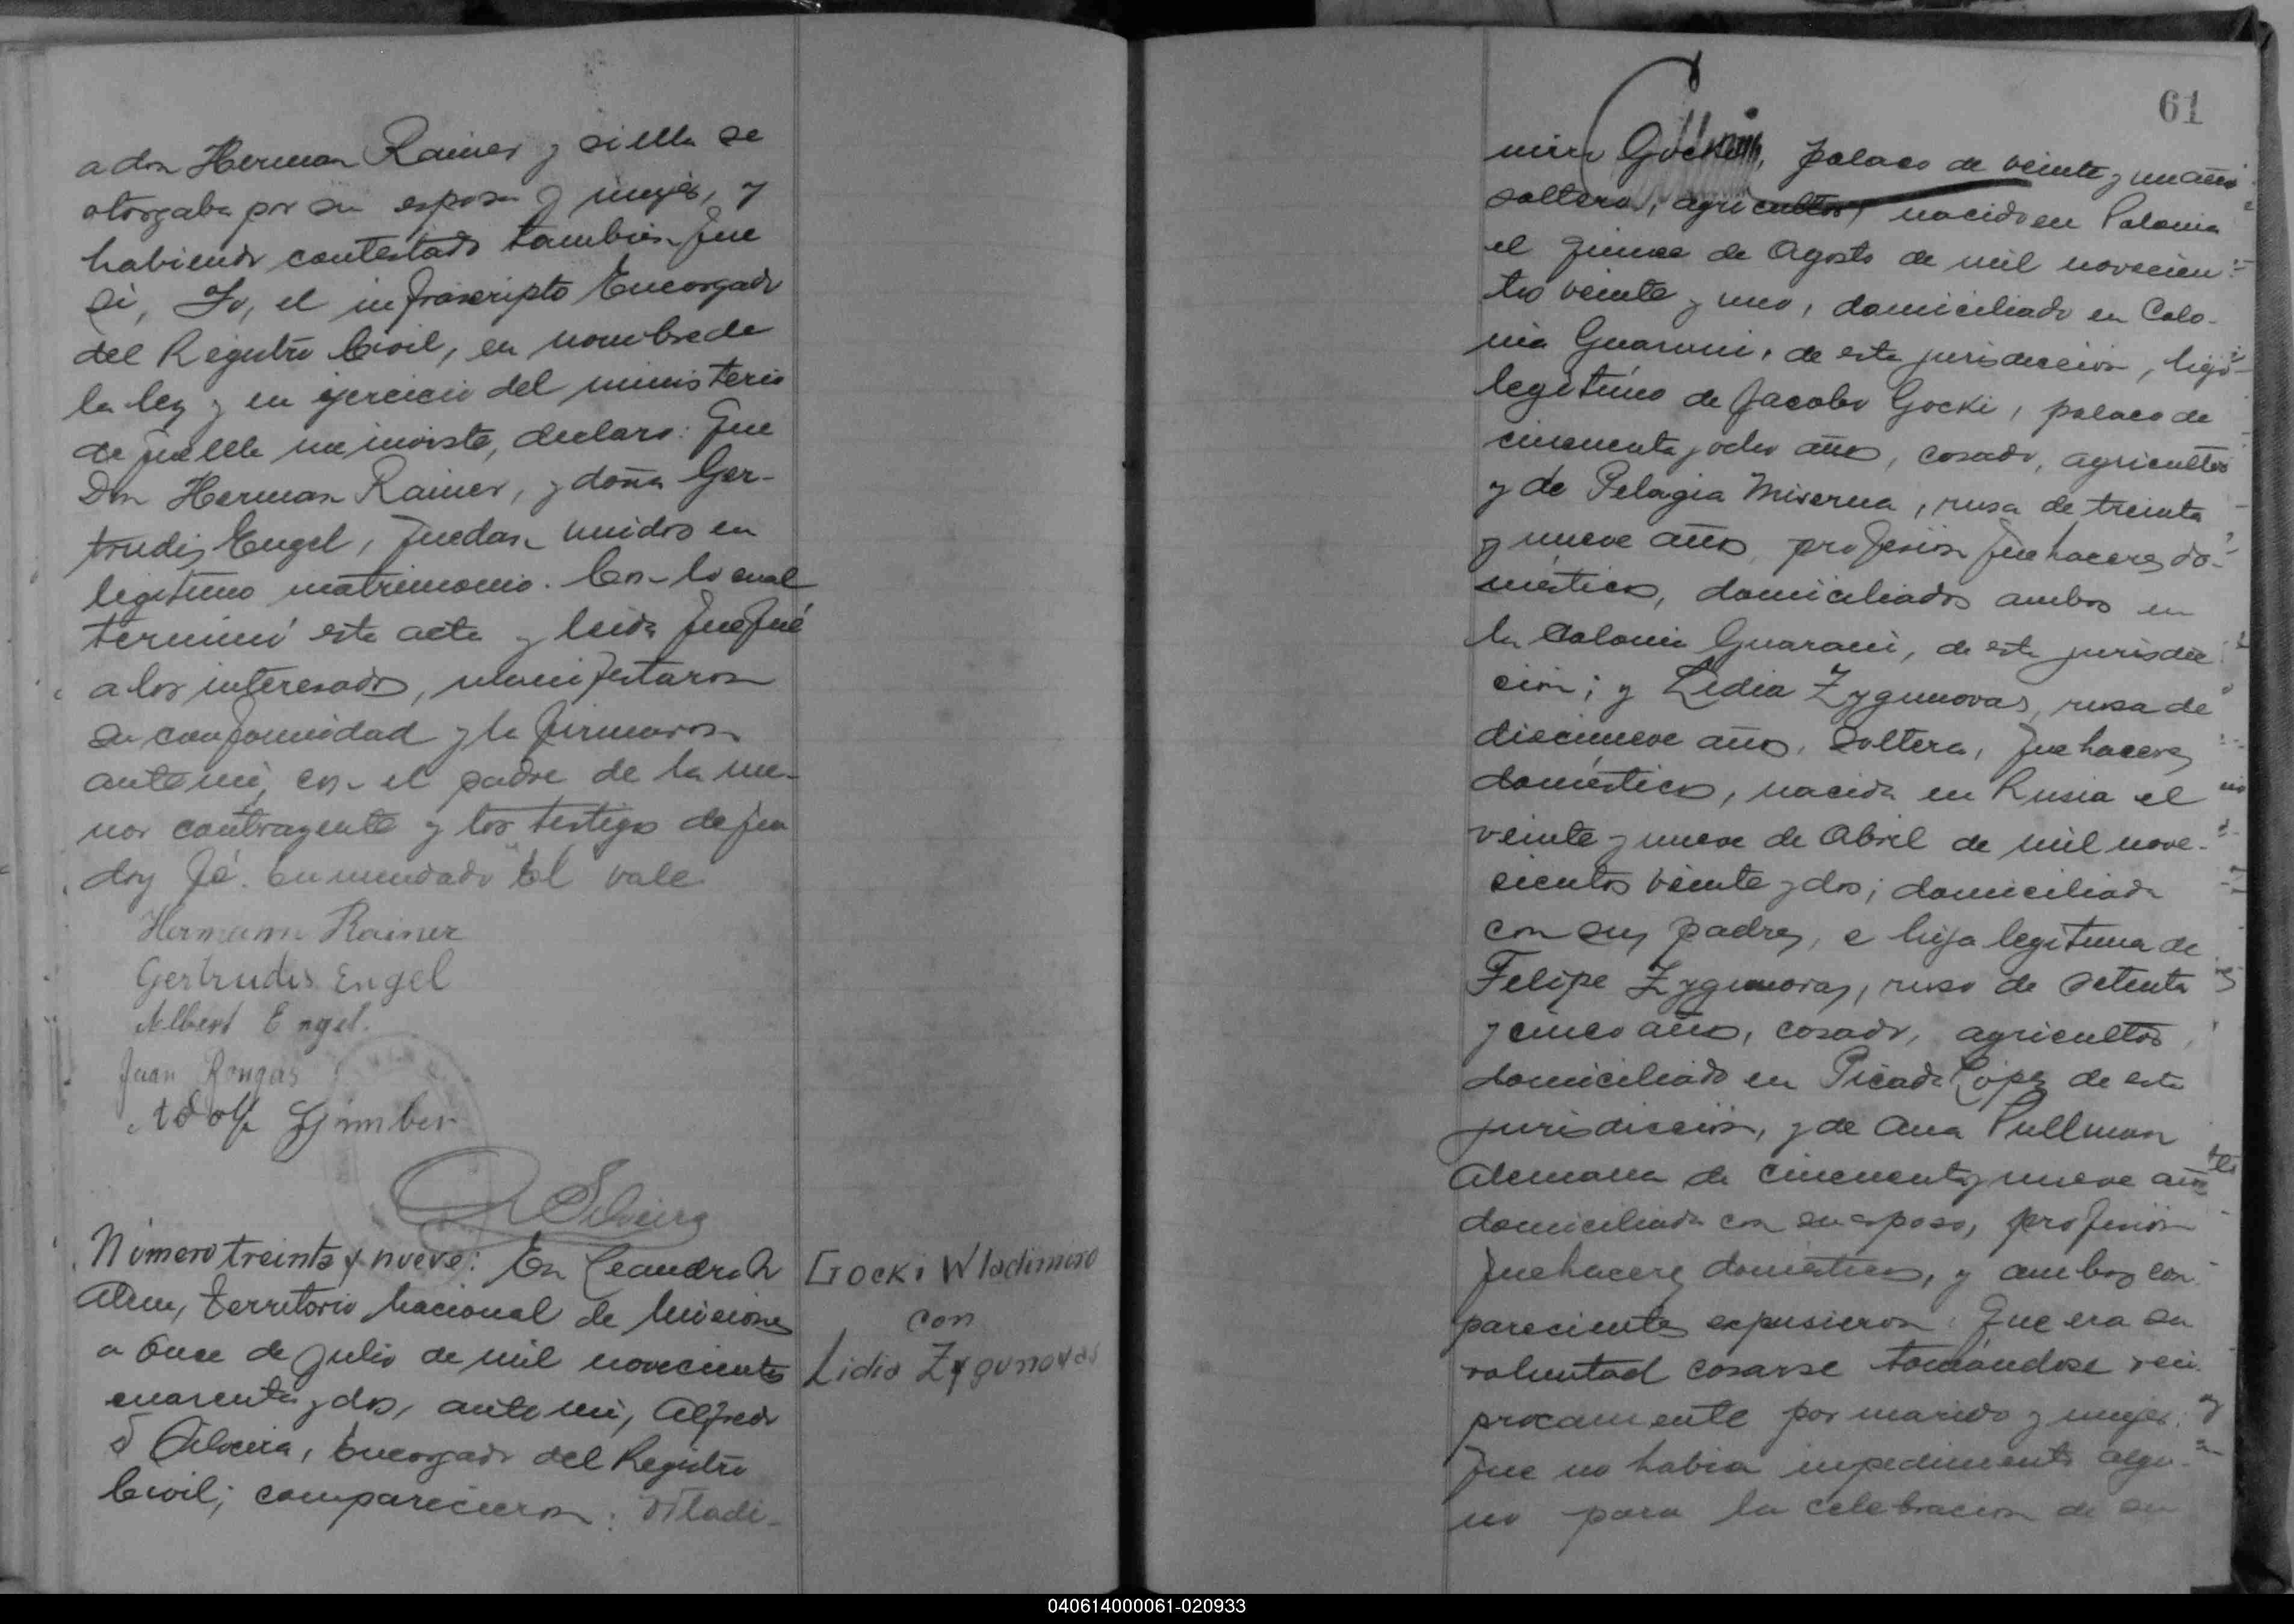 a don Herman Rainer y si ella se
otorgaba por su esposa y mujer, y
habiendo contestado tambien que
si, Yo, el infrascripto Encargado
del Registro Civil, en nombre de
la ley y en ejercicio del ministerio
de que ella me inviste, declaro: Que
Don Herman Rainer, y doña Ger-
trudis Engel, quedan unidos en
legitimo matrimonio. Con lo cual
terminó este acta y leida que fué
a los interesados, manifestaron
su conformidad y la firmaron
ante mi, con el padre de la me-
nor contrayente y los testigos de que
doy fé. Enmendado "El vale
Hermann Rainer
Gertrudis Engel
Albert Engel.
Juan Rongas
Adolf
A Silveira
Número treinta y nueve: En Leandro N
Alem, territorio Nacional de Misiones
a Once de Julio de mil novecientos
cuarenta y dos, ante mi, Alfredo
Silveira, Encargado del Registro
Civil; comparecieron: Wladi-
Gocki Wladimiro
con
Lidia Zygunovas
61
miro Gocki, polaco de veinte y un años
soltero, agricultor, nacido en Polonia
el quince de Agosto de mil novecien-
tos veinte y uno, domiciliado en Colo-
nia Guarani, de esta jurisdiccion, hijo
legitimo de Jacobo Gocki, polaco de
cincuenta y ocho años, casado, agricultor
y de Pelagia Miserna, rusa de treinta
y nueve años, profesion quehaceres do-
mesticos, domiciliados ambos en
la Colonia Guarani, de esta jurisdic
cion; y Lidia Zygunovas, rusa de
diecinueve años, soltera, quehaceres
domésticos, nacida en Rusia el
veinte y nueve de Abril de mil nove-
cientos veinte y dos; domiciliada
con sus padres, e hija legitima de
Felipe Zygunovas, ruso de setenta
y cinco años, casado, agricultor,
domiciliado en Picada López de esta
jurisdiccion, y de Ana Pullman
Alemana de cincuenta y nueve años
domiciliada con su esposo, profesion
quehaceres domesticos, y ambos com
parecientes expusieron: Que era su
voluntad casarse tomándose reci
procamente por marido y mujer;
Que no habia impedimento algu-
no para la celebracion de su
040614000061-020933